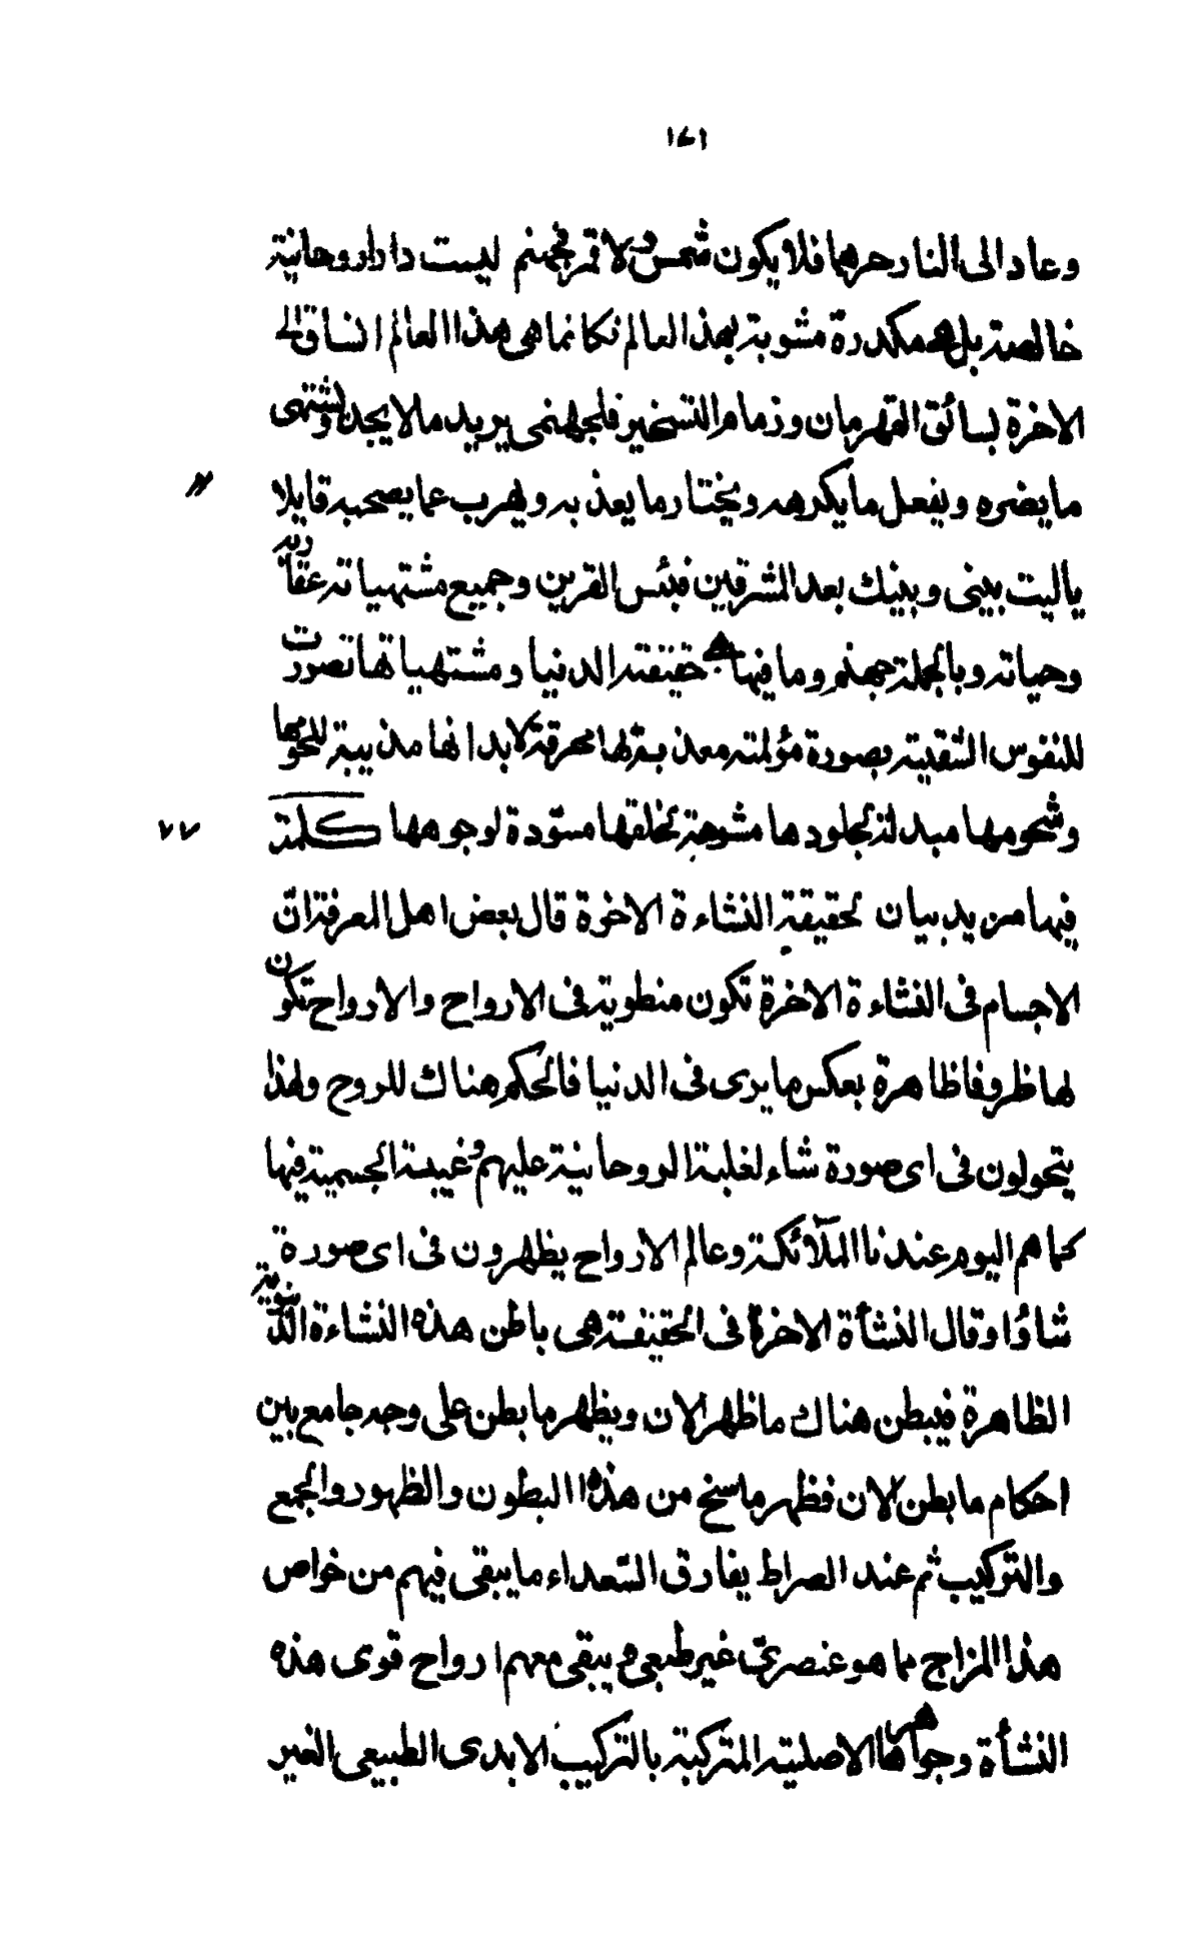 ١٧١
وعاد الى النار حرهما فلا يكون شمس ولا قمر فجهنم ليست دارا روحانية
خالصة بل هى مكدرة مشوبة بهذا العالم فكانما هى هذا العالم انساق الى
الاخرة بسائق القهرمان وزمام التسخير فلجهنمى يريد ما لا يجد ويشتهى
ما يضره ويفعل ما يكرهه ويختار ما يعذبه ويهرب عما يصحبه قايلا
ياليت بينى وبينك بعد المشرقين فبئس القرين وجميع مشتهياته عقاربه
وحياته وبالجملة جهنم وما فيها هى حقيقة الدنيا ومشتهياتها تصورت
للنفوس الشقية بصورة مؤلمة معذبة لها محرقة لابدانها مذيبة للحومها
وشحومها مبدلة لجلودها مشوهة لخلقها مسوّدة لوجوهها كلمة
٧٧
فيها مزيد بيان لحقيقة النشاءة الاخرة قال بعض اهل المعرفة ان
الاجسام فى النشاءة الاخرة تكون منطوية فى الارواح والارواح تكون
لها ظروفا ظاهرة بعكس ما يرى فى الدنيا فالحكم هناك للروح ولهذا
يتحولون فى اى صورة شاء لغلبة الروحانية عليهم وغيبة الجسمية فيها
كما هم اليوم عندنا الملآئكة وعالم الارواح يظهرون فى اى صورة
شاؤا وقال النشأة الاخرة فى الحقيقة هى باطن هذه النشاءة الدنيوية
الظاهرة فيبطن هناك ما ظهر الان ويظهر ما بطن على وجه جامع بين
احكام ما بطن الان فظهر ما سنخ من هذه البطون والظهور والجمع
والتركيب ثم عند الصراط يفارق السّعداء ما يبقى فيهم من خواص
هذا المزاج مما هو عنصرى غير طبعى ويبقى معهم ارواح قوى هذه
النشأة وجواهرها الاصلية المتركبة بالتركيب الابدى الطبيعى الغير